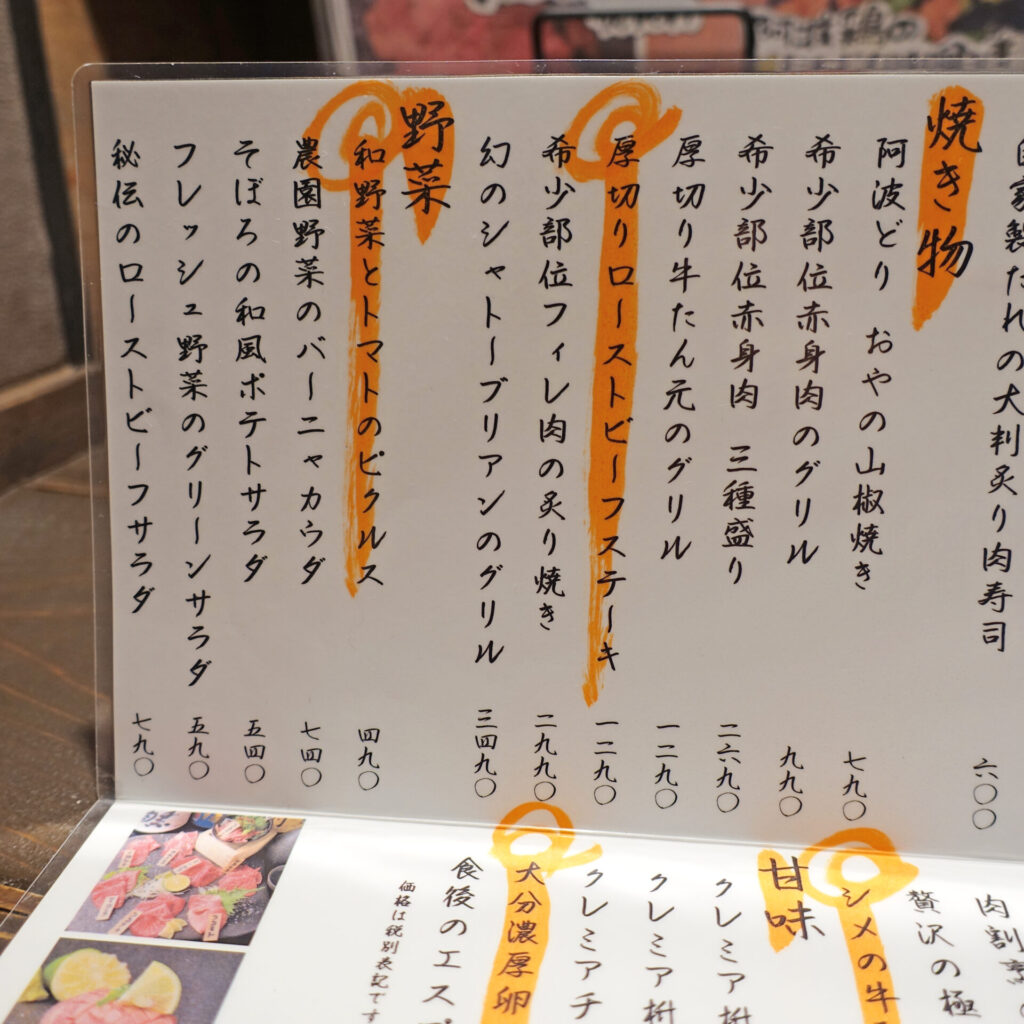 自家製だれの大判炙り肉寿司 六〇〇
焼き物
阿波どり おやの山椒焼き 七九〇
希少部位赤身肉のグリル 九九〇
希少部位赤身肉 三種盛り 二六九〇
厚切り牛たん元のグリル 一二九〇
厚切りローストビーフステーキ 一二九〇
希少部位フィレ肉の炙り焼き 二九九〇
幻のシャトーブリアンのグリル 三四九〇
野菜
和野菜とトマトのピクルス 四九〇
農園野菜のバーニャカウダ 七四〇
そぼろの和風ポテトサラダ 五四〇
フレッシュ野菜のグリーンサラダ 五九〇
秘伝のローストビーフサラダ 七九〇
肉割烹
贅沢の極
シメの牛
甘味
クレミア
クレミア
クレミアチ
大分濃厚卵
食後のエスプ
価格は税別表記です